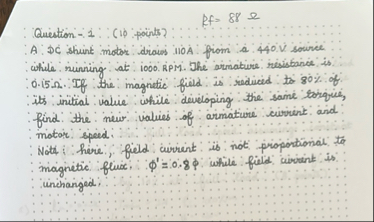 Rf = 88 Ω
Question - 1 (10 points)
A DC shunt motor draws 110A from a 440V source
while running at 1000 RPM. The armature resistance is
0.15Ω. If the magnetic field is reduced to 80% of
its initial value while developing the same torque,
find the new values of armature current and
motor speed.
Note: here, field current is not proportional to
magnetic flux. Φ' = 0.8Φ while field current is
unchanged.